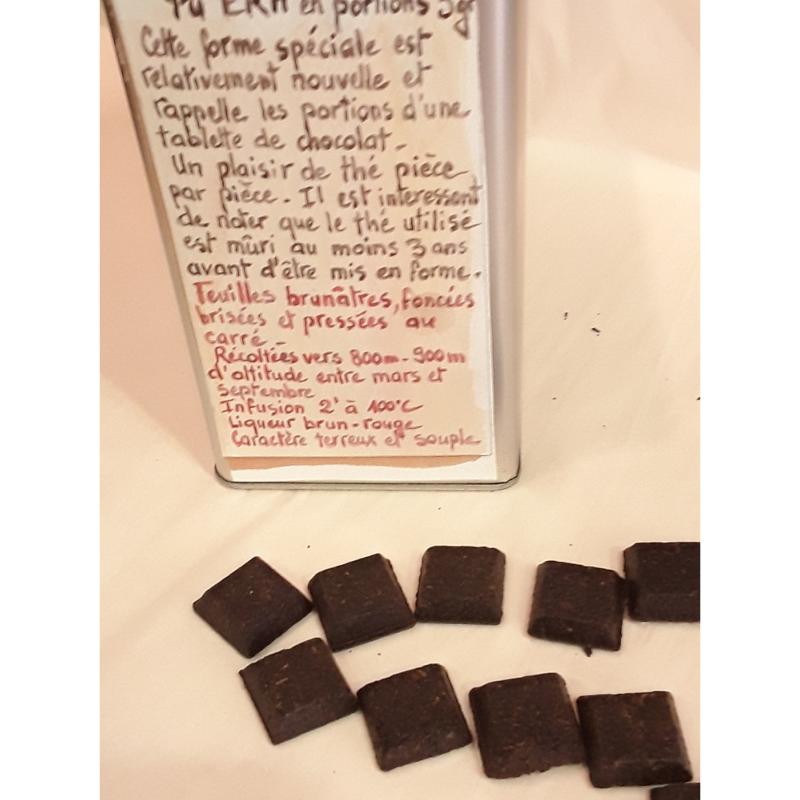 Pu ERH en portions 5gr
Cette forme spéciale est
relativement nouvelle et
rappelle les portions d'une
tablette de chocolat.
Un plaisir de thé pièce
par pièce. Il est interessant
de noter que le thé utilisé
est mûri au moins 3 ans
avant d'être mis en forme.
Feuilles brunâtres, foncées
brisées et pressées au
carré.
Récoltées vers 800m-900m
d'altitude entre mars et
septembre
Infusion 2' à 100°C
Liqueur brun-rouge
Caractère terreux et souple